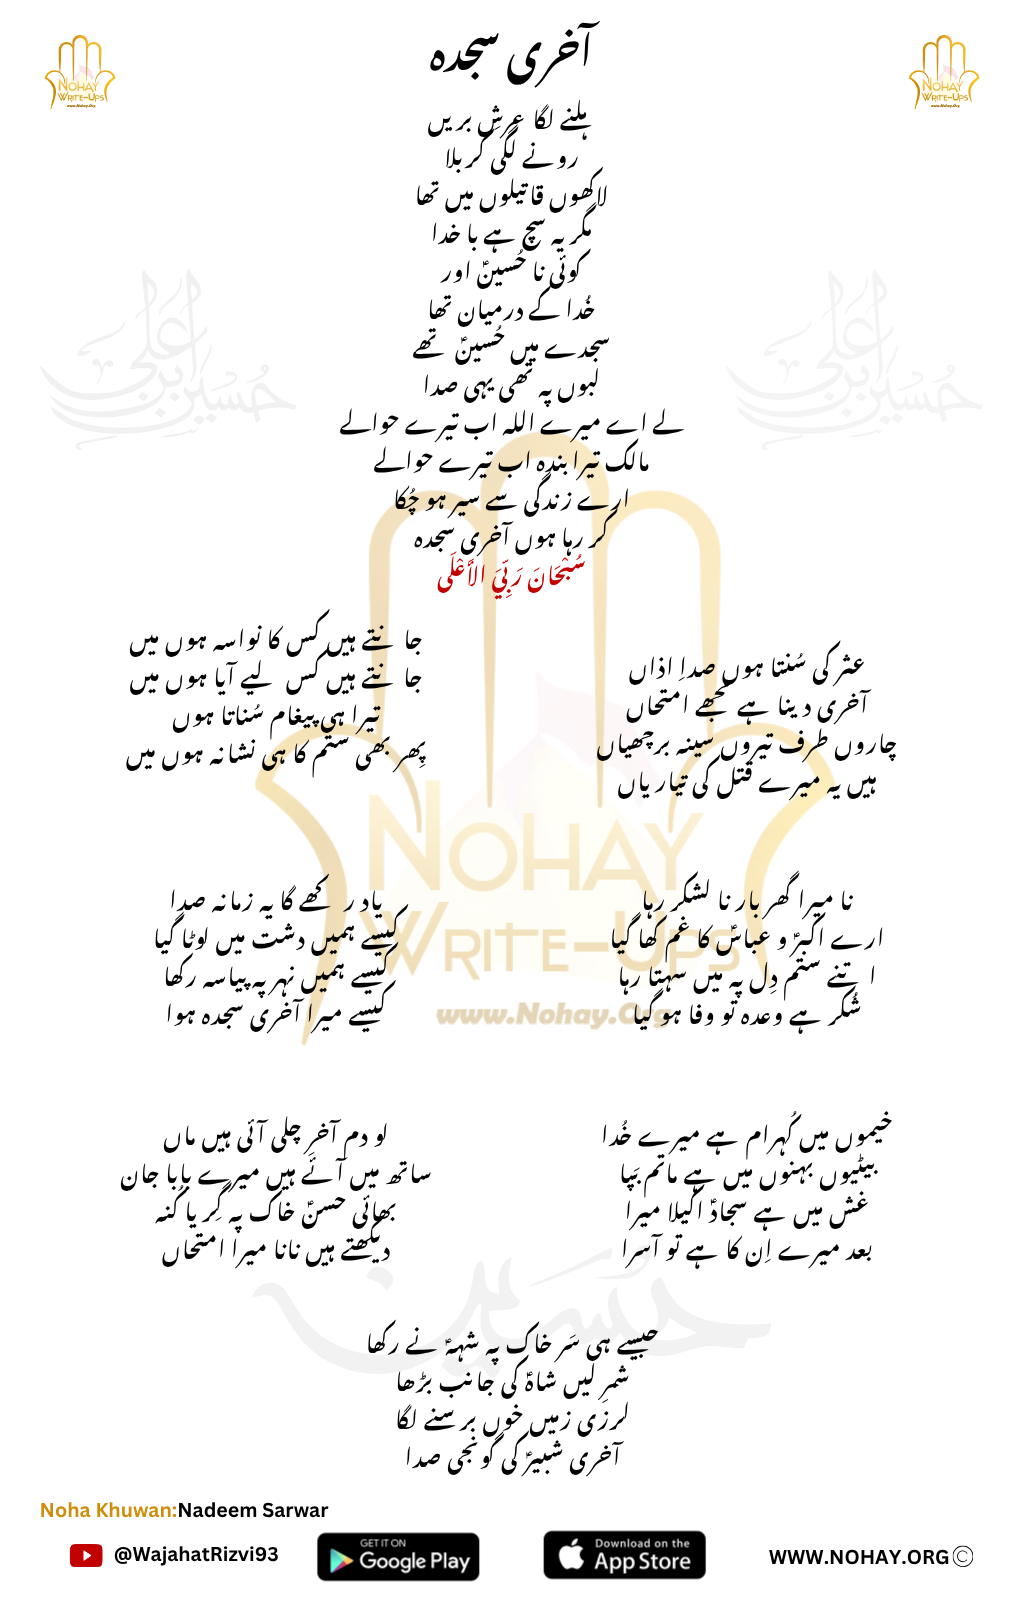 آخری سجدہ
NOHAY
WRITE-UPS
www.Nohay.Org
NOHAY
WRITE-UPS
www.Nohay.Org
ہلنے لگا عرشِ بریں
رونے لگی کربلا
لاکھوں قاتیلوں میں تھا
مگر یہ سچ ہے با خدا
کوئی نا حُسینؑ اور
خُدا کے درمیان تھا
سجدے میں حُسینؑ تھے
لبوں پہ تھی یہی صدا
لے اے میرے اللہ اب تیرے حوالے
مالک تیرا بندہ اب تیرے حوالے
ارے زندگی سے سیر ہو چُکا
کر رہا ہوں آخری سجدہ
سُبْحَانَ رَبِّيَ الأَعْلَى
عثر کی سُنتا ہوں صداِ اذاں
آخری دینا ہے مجھے امتحاں
چاروں طرف تیروں سینہ برچھیاں
ہیں یہ میرے قتل کی تیاریاں
جانتے ہیں کس کا نواسہ ہوں میں
جانتے ہیں کس لیے آیا ہوں میں
تیرا ہی پیغام سُناتا ہوں
پِھر بھی ستم کا ہی نشانہ ہوں میں
نا میرا گھر بار نا لشکر رہا
ارے اکبرؑ و عباسؑ کا غم کھا گیا
اتنے ستم دِل پہ میں سہتا رہا
شُکر ہے وعدہ تو وفا ہو گیا
یاد رکھے گا یہ زمانہ صدا
کیسے ہمیں دشت میں لوٹا گیا
کیسے ہمیں نہر پہ پیاسہ رکھا
کیسے میرا آخری سجدہ ہوا
NOHAY
WRITE-UPS
www.Nohay.Org
خیموں میں کُہرام ہے میرے خُدا
بیٹیوں بہنوں میں ہے ماتم بَپا
غش میں ہے سجادؑ اکیلا میرا
بعد میرے اِن کا ہے تو آسرا
لو دم آخرِ چلی آئی ہیں ماں
ساتھ میں آئے ہیں میرے بابا جان
بھائی حسنؑ خاک پہ گِریا کنہ
دیکھتے ہیں نانا میرا امتحاں
جیسے ہی سَر خاک پہ شہہؑ نے رکھا
شمرِ لیں شاہؑ کی جانب بڑھا
لرزی زمیں خوں برسنے لگا
آخری شبیرؑ کی گونجی صدا
Noha Khuwan:Nadeem Sarwar
@WajahatRizvi93
GET IT ON
Google Play
Download on the
App Store
WWW.NOHAY.ORG©